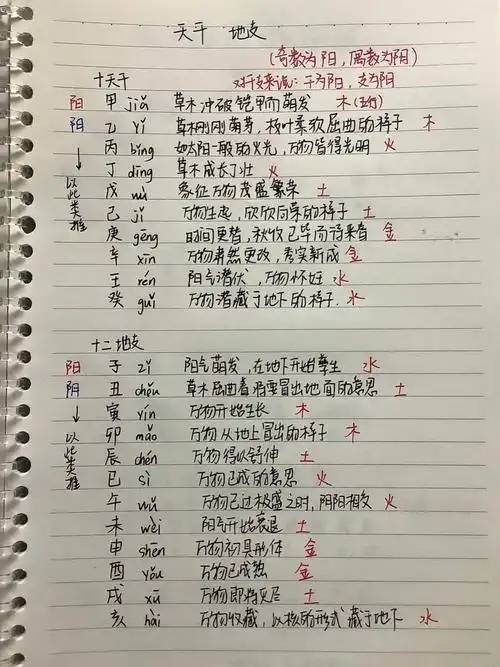 天干 地支
(奇数为阳，偶数为阴)
对干支来说：干为阳，支为阴
十天干
阳 甲 jiǎ 草木冲破铠甲而萌发 木(五行)
阴 乙 yǐ 草木刚刚萌芽，枝叶柔软屈曲的样子 木
↓ 丙 bǐng 如太阳一般的火光，万物皆得光明 火
以此类推
丁 dīng 草木成长丁壮 火
戊 wù 象征万物茂盛繁荣 土
己 jǐ 万物生起，欣欣向荣的样子 土
庚 gēng 时间更替，秋收已毕而待来春 金
辛 xīn 万物肃然更改，秀实新成 金
壬 rén 阳气潜伏，万物怀妊 水
癸 guǐ 万物潜藏于地下的样子. 水
十二地支
阳 子 zǐ 阳气萌发，在地下开始孳生 水
阴 丑 chǒu 草木屈曲着将要冒出地面的意思 土
↓ 寅 yín 万物开始生长 木
以此类推
卯 mǎo 万物从地上冒出的样子 木
辰 chén 万物得以舒伸 土
巳 sì 万物已成的意思 火
午 wǔ 万物已过极盛之时，阴阳相交 火
未 wèi 阳气开始衰退 土
申 shēn 万物初具形体 金
酉 yǒu 万物已成熟 金
戌 xū 万物即将灭尽 土
亥 hài 万物收藏，以核的形式藏于地下 水